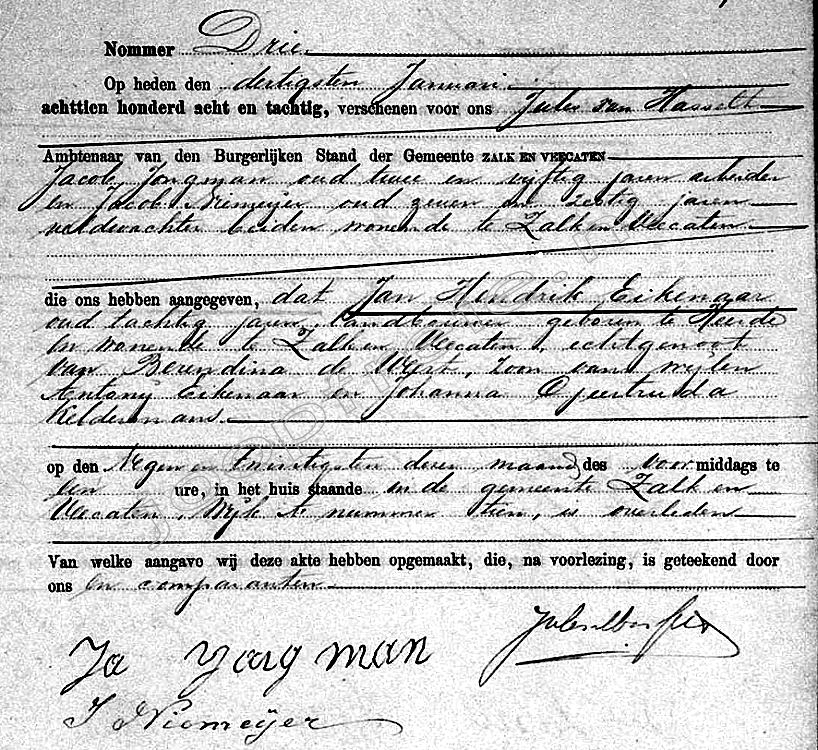 Nommer Drie.
Op heden den dertigsten Januari
achttien honderd acht en tachtig, verschenen voor ons Jules van Hasselt
Ambtenaar van den Burgerlijken Stand der Gemeente ZALK EN VEECATEN
Jacob Jongman oud twee en vijftig jaren arbeider
en Jacob Niemeyer oud zeven en zestig jaren
veldwachter beiden wonende te Zalk en Veecaten
die ons hebben aangegeven, dat Jan Hendrik Eikenaar
oud tachtig jaren, landbouwer geboren te Heerde
en wonende te Zalk en Veecaten, echtgenoot
van Berendina de Weert, zoon van wijlen
Antonij Eikenaar en Johanna Geertruida
Keldermans.
op den Negen en twintigsten dezer maand, des voor middags te
een ure, in het huis staande in de gemeente Zalk en
Veecaten, Wijk nummer tien, is overleden
Van welke aangave wij deze akte hebben opgemaakt, die, na voorlezing, is geteekend door
ons en comparanten
Ja Yongman
J Niemeÿer